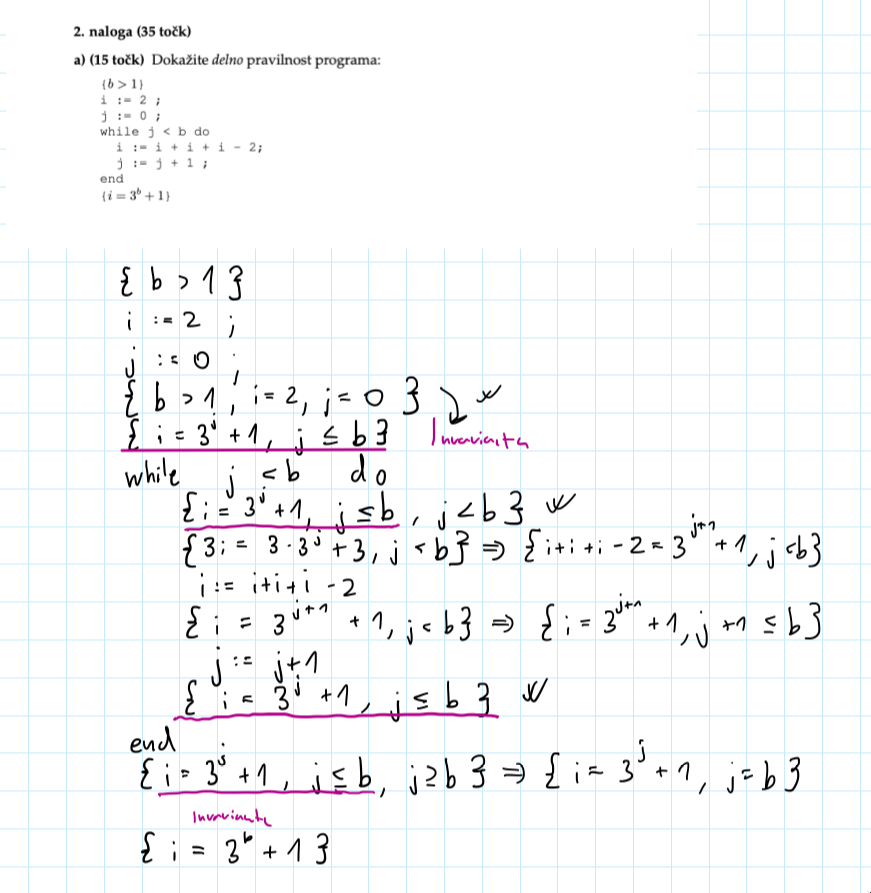 2. naloga (35 točk)
a) (15 točk) Dokažite delno pravilnost programa:
{b > 1}
i := 2 ;
j := 0 ;
while j < b do
i := i + i + i - 2;
j := j + 1 ;
end
{i = 3ᵇ + 1}
{ b > 1 }
i := 2 ;
j := 0 ;
{ b > 1, i = 2, j = 0 } ✓
{ i = 3ʲ + 1, j ≤ b } Invarianta
while j < b do
{ i = 3ʲ + 1, j ≤ b, j < b } ✓
{ 3i = 3·3ʲ + 3, j < b } ⇒ { i + i + i - 2 = 3ʲ⁺¹ + 1, j < b }
i := i + i + i - 2
{ i = 3ʲ⁺¹ + 1, j < b } ⇒ { i = 3ʲ⁺¹ + 1, j + 1 ≤ b }
j := j + 1
{ i = 3ʲ + 1, j ≤ b } ✓
end
{ i = 3ʲ + 1, j ≤ b, j ≥ b } ⇒ { i = 3ʲ + 1, j = b }
Invarianta
{ i = 3ᵇ + 1 }